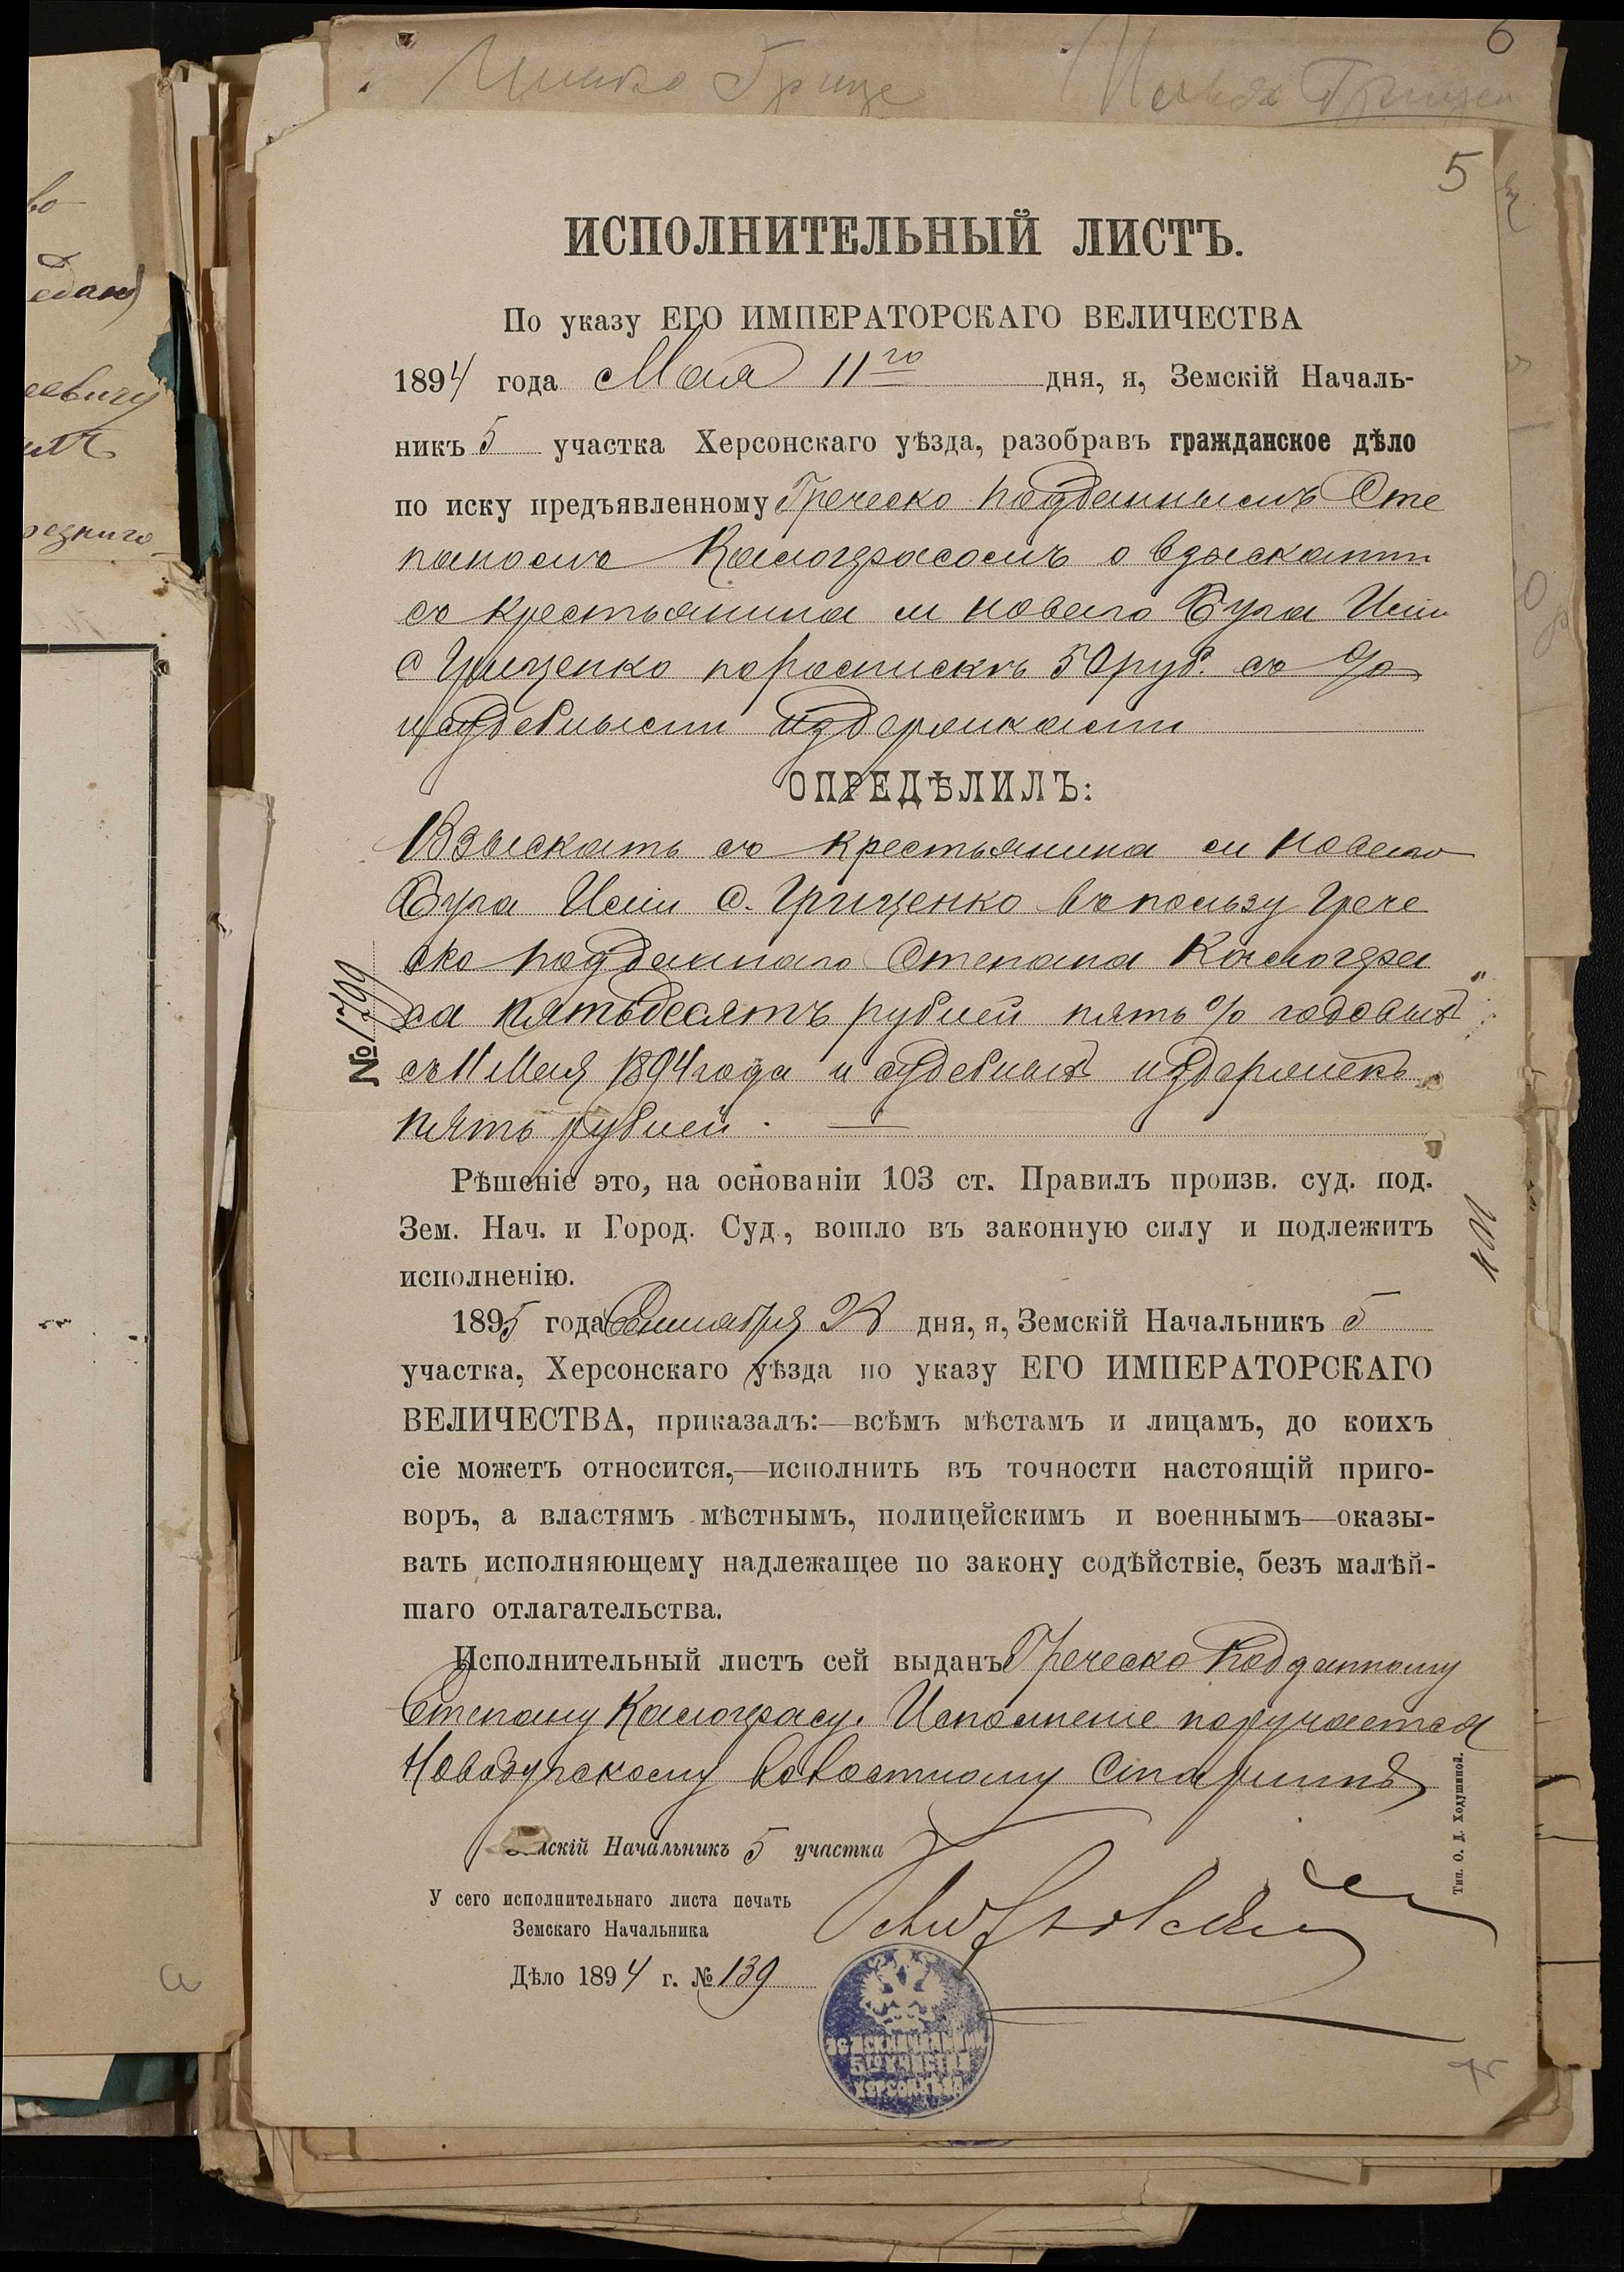 6
5
ИСПОЛНИТЕЛЬНЫЙ ЛИСТЪ.
По указу ЕГО ИМПЕРАТОРСКАГО ВЕЛИЧЕСТВА
1894 года Мая 11го дня, я, Земскій Началь-
никъ 5 участка Херсонскаго уѣзда, разобравъ гражданское дѣло
по иску предъявленному Греческо подданнымъ Сте
паномъ о взысканіи
съ крестьянина м Новаго Буга
Грищенко по роспискѣ 50 руб. съ %
и судебными издержками
ОПРЕДѢЛИЛЪ:
Взыскать съ крестьянина м Новаго
Буга Грищенко въ пользу Грече
ско подданнаго Степана
са пятьдесятъ рублей пять % годовыхъ
съ 11 Мая 1894 года и судебныхъ издержекъ
пять рублей.
№ 1799
Рѣшеніе это, на основаніи 103 ст. Правилъ произв. суд. под.
Зем. Нач. и Город. Суд., вошло въ законную силу и подлежитъ
исполненію.
1895 года Сентября дня, я, Земскій Начальникъ 5
участка, Херсонскаго уѣзда по указу ЕГО ИМПЕРАТОРСКАГО
ВЕЛИЧЕСТВА, приказалъ:—всѣмъ мѣстамъ и лицамъ, до коихъ
сіе можетъ относится,—исполнить въ точности настоящій приго-
воръ, а властямъ мѣстнымъ, полицейскимъ и военнымъ—оказы-
вать исполняющему надлежащее по закону содѣйствіе, безъ малѣй-
шаго отлагательства.
Исполнительный листъ сей выданъ Греческо Подданному
Степану Исполненіе поручается
Новобугскому Волостному Старшинѣ
Земскій Начальникъ 5 участка
У сего исполнительнаго листа печать
Земскаго Начальника
Дѣло 1894 г. № 139
Тип. О. Д. Ходушиной.